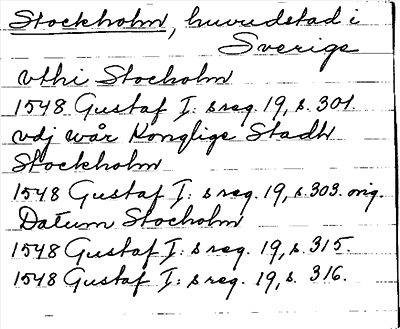 Stockholm, huvudstad i
Sverige
vthi Stocholm
1548 Gustaf I: s reg. 19, s. 301.
vdj wår Konglige Stadh
Stockholm
1548 Gustaf I: s reg. 19, s. 303. orig.
Datum Stocholm
1548 Gustaf I: s reg. 19, s. 315.
1548 Gustaf I: s reg. 19, s. 316.